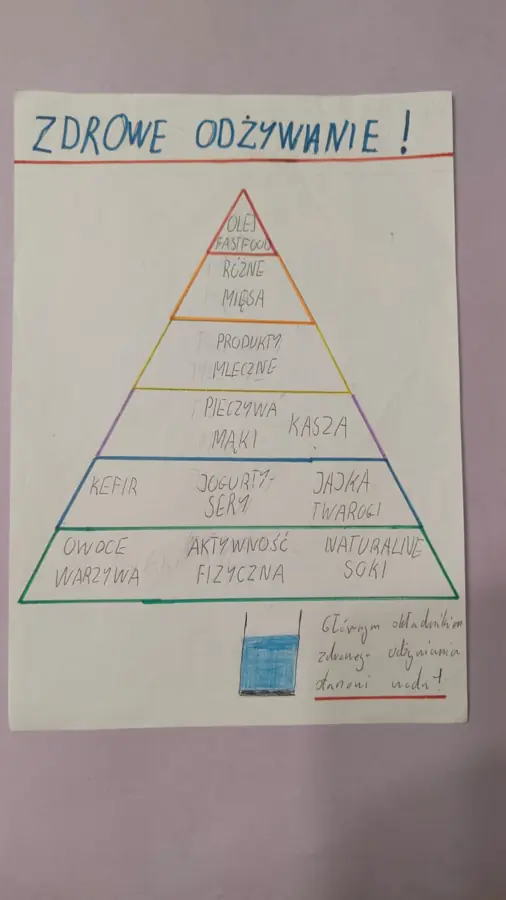 ZDROWE ODŻYWANIE!
OLEJ
FASTFOOD
RÓŻNE
MIĘSA
PRODUKTY
MLECZNE
PIECZYWA
MĄKI
KASZA
KEFIR
JOGURTY-
SERY
JAJKA
TWAROGI
OWOCE
WARZYWA
AKTYWNOŚĆ
FIZYCZNA
NATURALNE
SOKI
Głównym składnikiem
zdrowego odżywiania
stanowi woda!